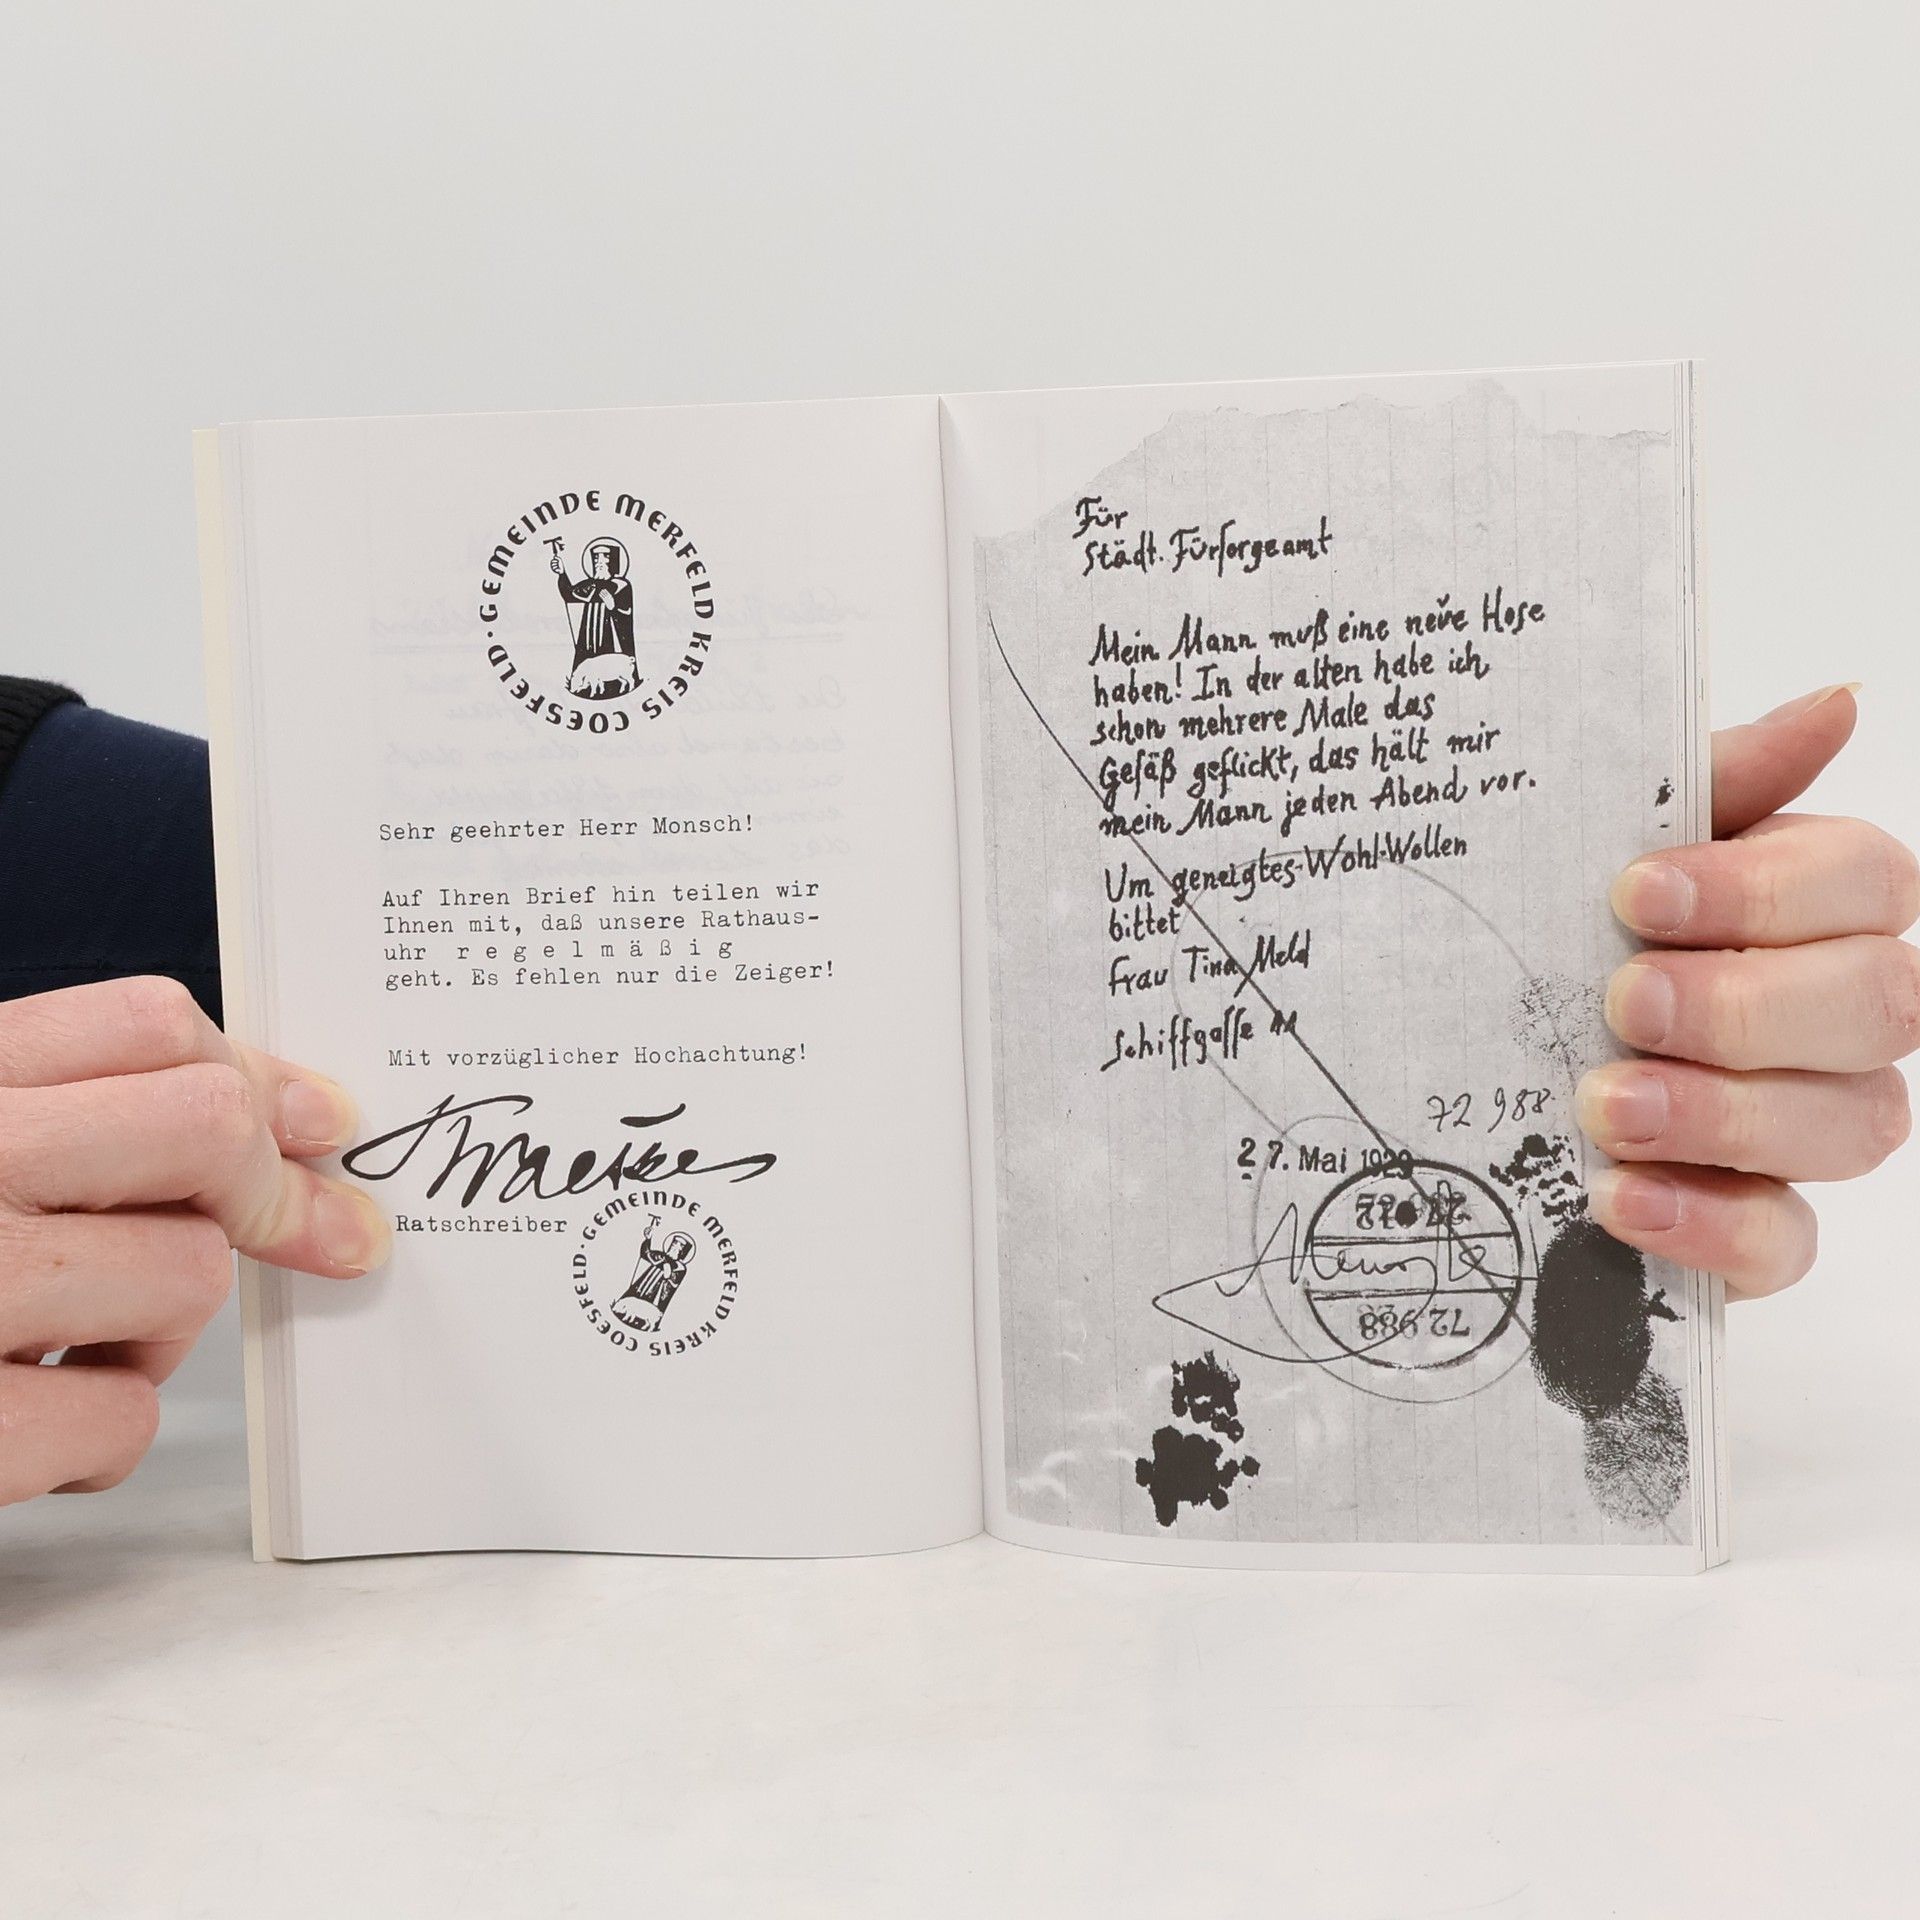 ·GEMEINDE MERFELD KREIS COESFELD
Sehr geehrter Herr Monsch!
Auf Ihren Brief hin teilen wir
Ihnen mit, daß unsere Rathaus-
uhr r e g e l m ä ß i g
geht. Es fehlen nur die Zeiger!
Mit vorzüglicher Hochachtung!
Ratschreiber
·GEMEINDE MERFELD KREIS COESFELD
Für
Städt. Fürsorgeamt
Mein Mann muß eine neue Hose
haben! In der alten habe ich
schon mehrere Male das
Gesäß geflickt, das hält mir
mein Mann jeden Abend vor.
Um geneigtes-Wohl-Wollen
bittet
Frau Tina Meld
Schiffgasse 11
72 988
27. Mai 1929
72 988